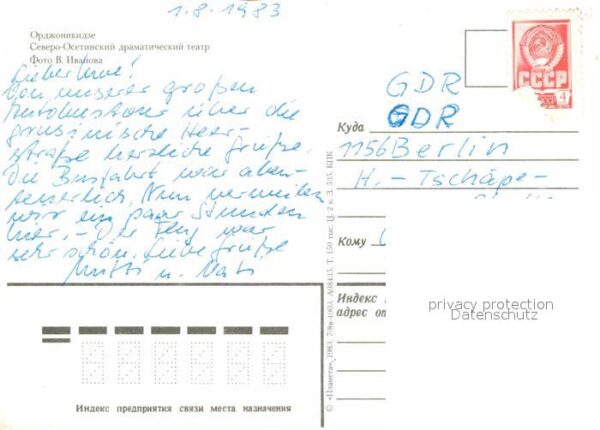 1.8.1983
Орджоникидзе
Северо-Осетинский драматический театр
Фото В. Иванова
Lieber Uwe!
Von unserer großen
Autobustour über die
grusinische Heer-
straße herzliche Grüße.
Die Busfahrt war aben-
teuerlich. Nun verweilen
wir ein paar Stunden
hier. – Der Flug war
sehr schön. Liebe Grüße
Mutti u. Vati
СССР
4
GDR
GDR
Куда
1156 Berlin
H. – Tschäpe-
Кому
Индекс
адрес от
privacy protection
Datenschutz
Индекс предприятия связи места назначения
© «Планета», 1983. 7/8в-1003. А08435. Т. 150 тыс. Ц. 2 к. З. 535. КПК